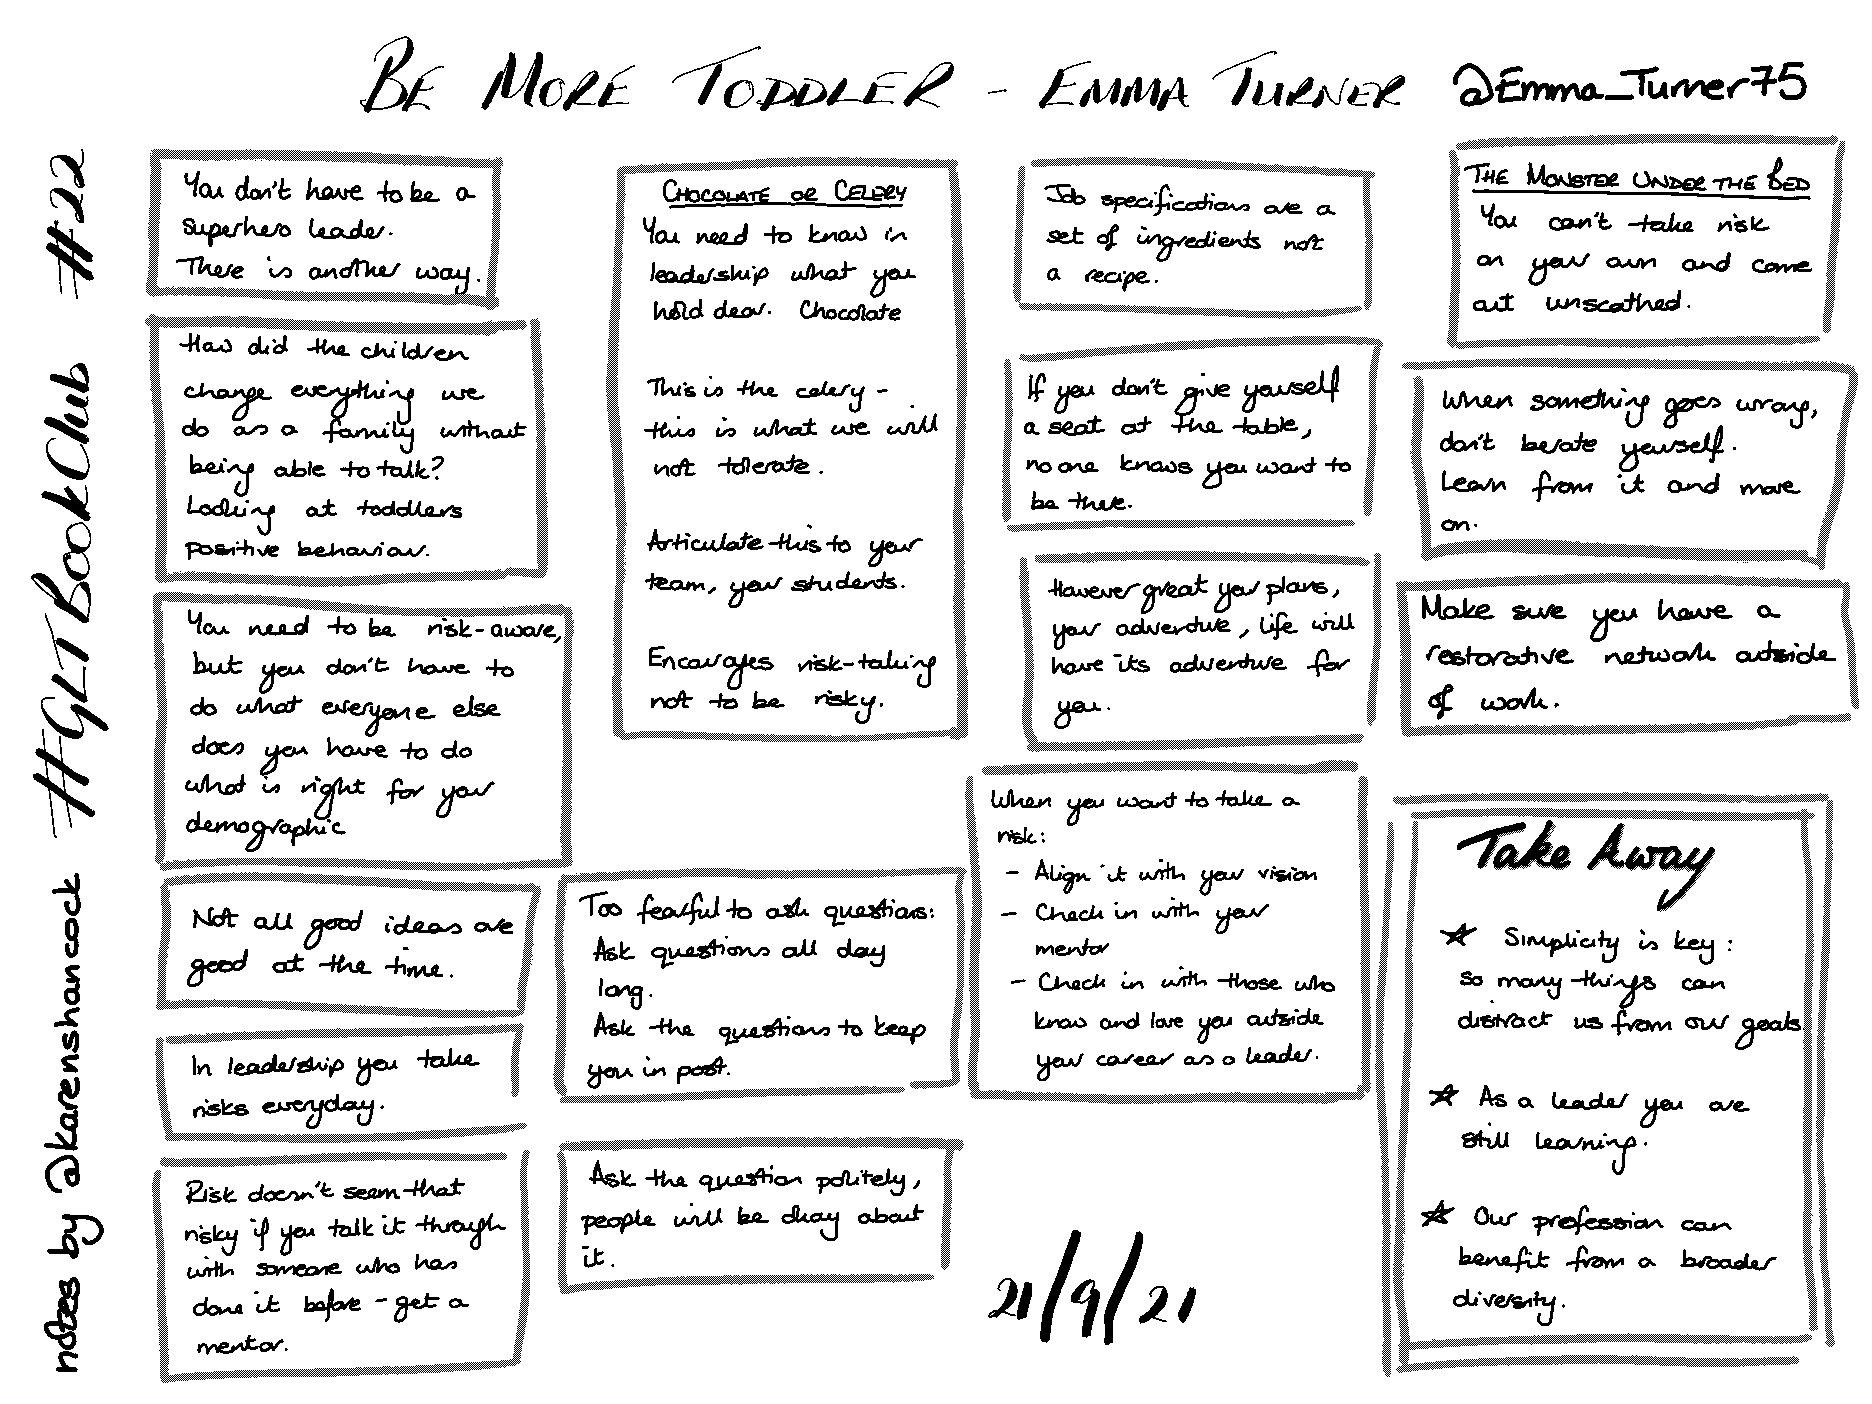 BE MORE TODDLER - EMMA TURNER @Emma_Turner75
#GLTBookClub #22
notes by @karenshancock
You don't have to be a
superhero leader.
There is another way.
How did the children
change everything we
do as a family without
being able to talk?
Looking at toddlers
positive behaviour.
You need to be risk-aware,
but you don't have to
do what everyone else
does you have to do
what is right for your
demographic
Not all good ideas are
good at the time.
In leadership you take
risks everyday.
Risk doesn't seem that
risky if you talk it through
with someone who has
done it before - get a
mentor.
CHOCOLATE OR CELERY
You need to know in
leadership what you
hold dear. Chocolate
This is the celery -
this is what we will
not tolerate.
Articulate this to your
team, your students.
Encourages risk-taking
not to be risky.
Too fearful to ask questions:
Ask questions all day
long.
Ask the questions to keep
you in post.
Ask the question politely,
people will be okay about
it.
Job specifications are a
set of ingredients not
a recipe.
If you don't give yourself
a seat at the table,
no one knows you want to
be there.
However great your plans,
your adventure, life will
have its adventure for
you.
When you want to take a
risk:
- Align it with your vision
- Check in with your
mentor
- Check in with those who
know and love you outside
your career as a leader.
21/9/21
THE MONSTER UNDER THE BED
You can't take risk
on your own and come
out unscathed.
When something goes wrong,
don't berate yourself.
Learn from it and move
on.
Make sure you have a
restorative network outside
of work.
Take Away
☆ Simplicity is key:
so many things can
distract us from our goals
☆ As a leader you are
still learning.
☆ Our profession can
benefit from a broader
diversity.